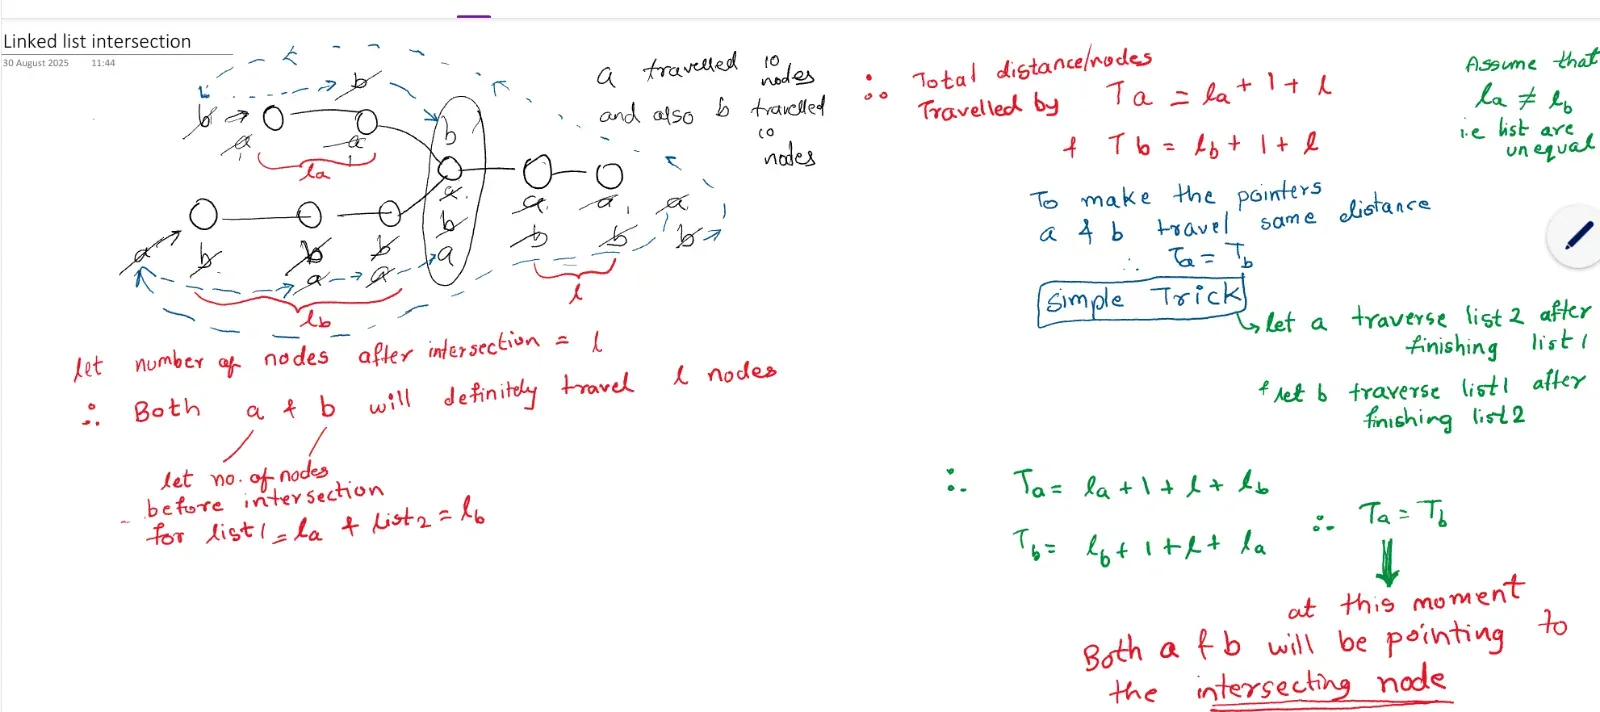 Linked list intersection
30 August 2025 11:44
b
b
a
a
la
b
a
b
a
a
b
b
b
a
a
lb
a
b
a
b
l
a
b
a travelled 10
nodes
and also b travelled
10
nodes
let number of nodes after intersection = l
∴ Both a & b will definitely travel l nodes
let no. of nodes
before intersection
for list1 = la & list2 = lb
∴ Total distance/nodes
Travelled by Ta = la + 1 + l
& Tb = lb + 1 + l
Assume that
la ≠ lb
i.e list are
unequal
To make the pointers
a & b travel same distance
∴ Ta = Tb
Simple Trick
let a traverse list 2 after
finishing list 1
& let b traverse list1 after
finishing list2
∴ Ta = la + 1 + l + lb
Tb = lb + 1 + l + la
∴ Ta = Tb
at this moment
Both a & b will be pointing to
the intersecting node